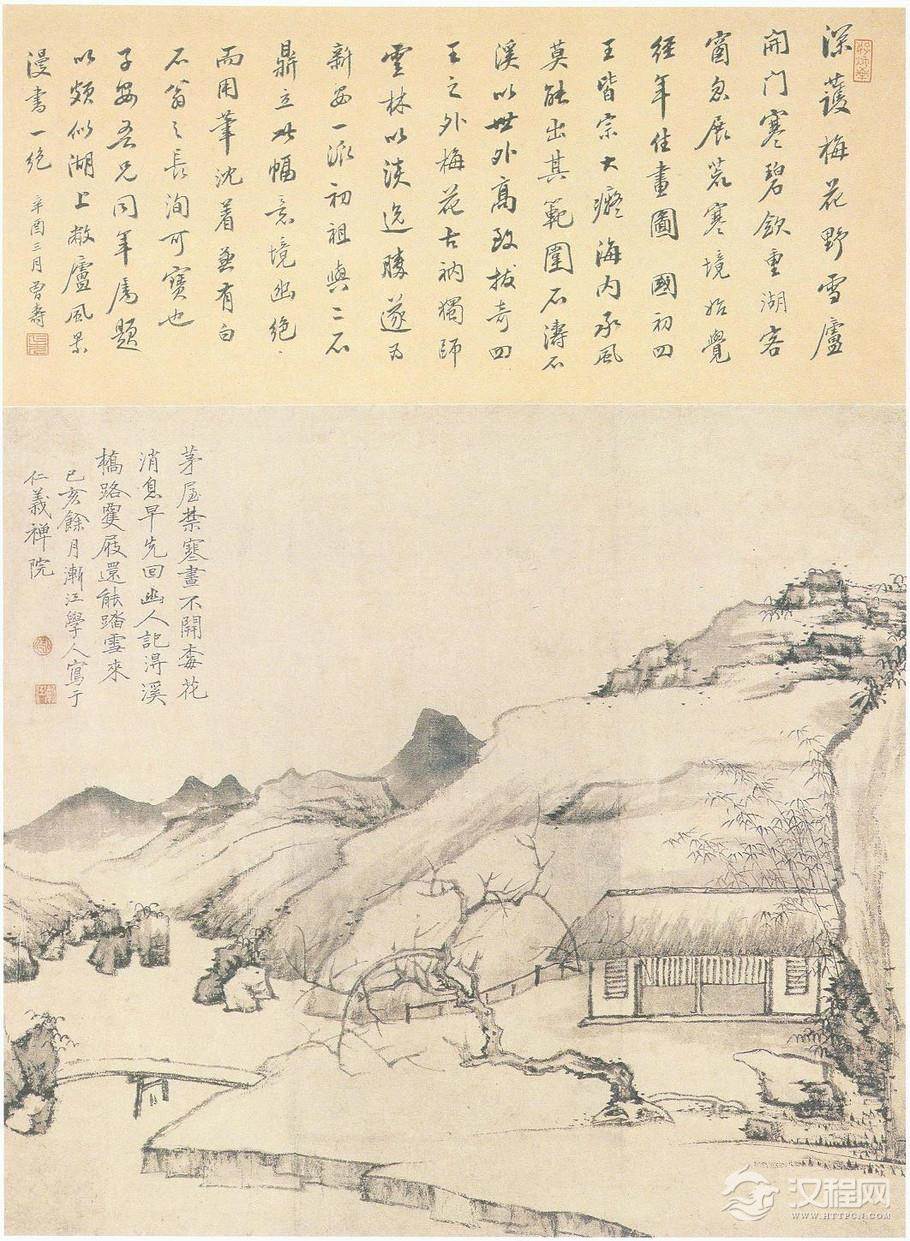 深護梅花野雪廬
開門寒碧飲重湖客
窗忽展荒寒境始覺
經年住畫圖 國初四
王皆宗大癡海內承風
莫能出其範圍石濤石
溪以世外高致拔奇四
王之外梅花古衲獨師
雲林以淡逸勝遂為
新安一派初祖與二石
鼎立此幅意境幽絕
而用筆沈着兼有白
石翁之長洵可寶也
子安吾兄同年屬題
以頗似湖上敝廬風景
漫書一絕 辛酉三月曾壽
茅屋禁寒晝不開梅花
消息早先回幽人記得溪
橋路雙屐還能踏雪來
己亥餘月漸江學人寫于
仁義禪院
汉程网
WWW.HTTPCN.COM